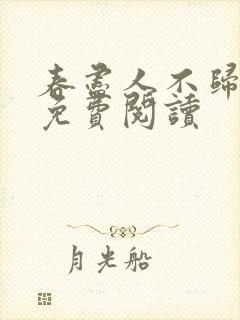 春盡人不歸
免費閱讀
月光船